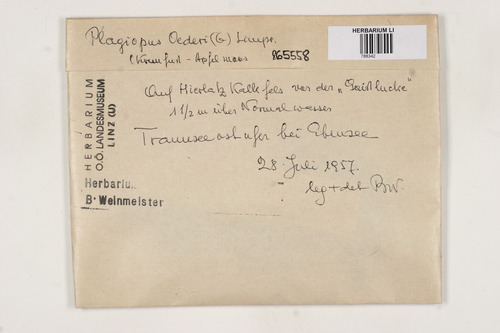 HERBARIUM LI
788342
Plagiopus Oederi (G) Limpr.
(Krumfuß - Apfelmoos 165558
Auf Hierlatz Kalkfels vor der „Geißlucke"
1 1/2 m über Normalwasser
Traunseeostufer bei Ebensee
28. Juli 1957.
leg + det BW.
HERBARIUM
O.Ö. LANDESMUSEUM
LINZ (LI)
Herbarium
B. Weinmeister